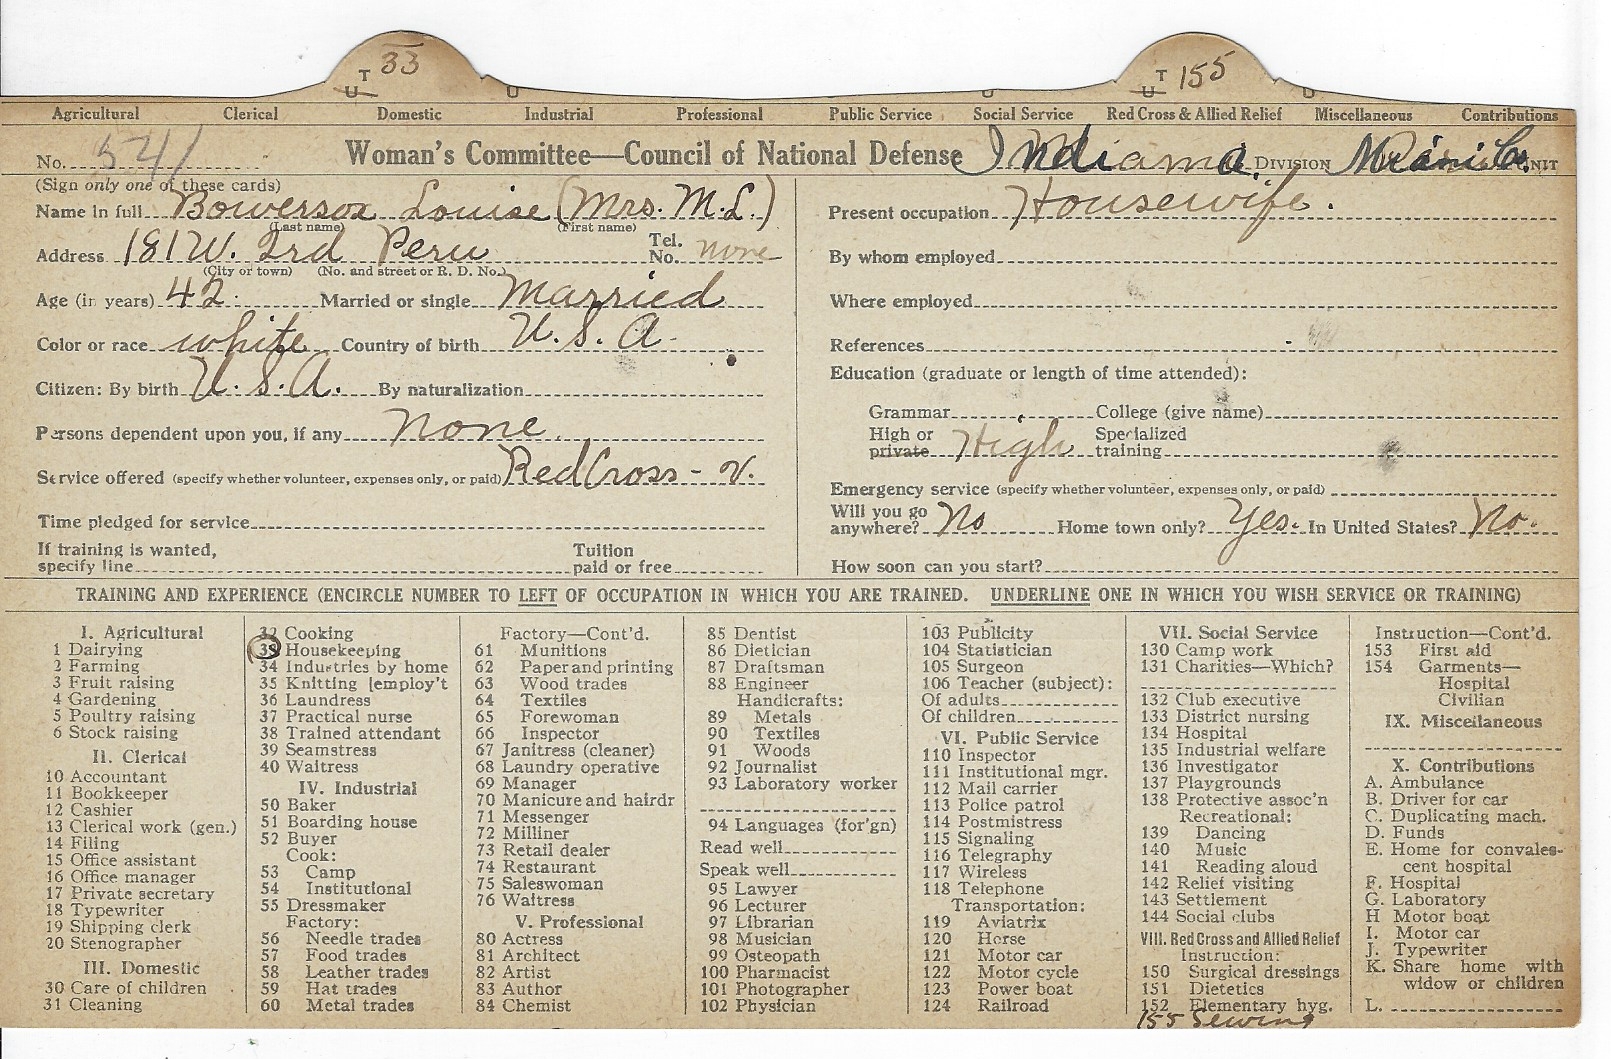 T 33 T 155
U U
Agricultural Clerical Domestic Industrial Professional Public Service Social Service Red Cross & Allied Relief Miscellaneous Contributions
No. 541 Woman's Committee—Council of National Defense Indiana DIVISION Miami Co. UNIT
(Sign only one of these cards)
Name in full Bowersox Louise (Mrs. M.L.)
(Last name) (First name)
Address 181 W. 3rd Peru Tel. No. none
(City or town) (No. and street or R. D. No.)
Age (in years) 42 Married or single Married
Color or race white Country of birth U.S.A.
Citizen: By birth U.S.A. By naturalization
Persons dependent upon you, if any None.
Service offered (specify whether volunteer, expenses only, or paid) Red Cross - V.
Time pledged for service
If training is wanted, specify line Tuition paid or free
Present occupation Housewife.
By whom employed
Where employed
References
Education (graduate or length of time attended):
Grammar College (give name)
High or private High Specialized training
Emergency service (specify whether volunteer, expenses only, or paid)
Will you go anywhere? No Home town only? Yes. In United States? No.
How soon can you start?
TRAINING AND EXPERIENCE (ENCIRCLE NUMBER TO LEFT OF OCCUPATION IN WHICH YOU ARE TRAINED. UNDERLINE ONE IN WHICH YOU WISH SERVICE OR TRAINING)
I. Agricultural
1 Dairying
2 Farming
3 Fruit raising
4 Gardening
5 Poultry raising
6 Stock raising
II. Clerical
10 Accountant
11 Bookkeeper
12 Cashier
13 Clerical work (gen.)
14 Filing
15 Office assistant
16 Office manager
17 Private secretary
18 Typewriter
19 Shipping clerk
20 Stenographer
III. Domestic
30 Care of children
31 Cleaning
32 Cooking
33 Housekeeping
34 Industries by home
35 Knitting [employ't
36 Laundress
37 Practical nurse
38 Trained attendant
39 Seamstress
40 Waitress
IV. Industrial
50 Baker
51 Boarding house
52 Buyer
Cook:
53 Camp
54 Institutional
55 Dressmaker
Factory:
56 Needle trades
57 Food trades
58 Leather trades
59 Hat trades
60 Metal trades
Factory—Cont'd.
61 Munitions
62 Paper and printing
63 Wood trades
64 Textiles
65 Forewoman
66 Inspector
67 Janitress (cleaner)
68 Laundry operative
69 Manager
70 Manicure and hairdr
71 Messenger
72 Milliner
73 Retail dealer
74 Restaurant
75 Saleswoman
76 Waitress
V. Professional
80 Actress
81 Architect
82 Artist
83 Author
84 Chemist
85 Dentist
86 Dietician
87 Draftsman
88 Engineer
Handicrafts:
89 Metals
90 Textiles
91 Woods
92 Journalist
93 Laboratory worker
94 Languages (for'gn)
Read well
Speak well
95 Lawyer
96 Lecturer
97 Librarian
98 Musician
99 Osteopath
100 Pharmacist
101 Photographer
102 Physician
103 Publicity
104 Statistician
105 Surgeon
106 Teacher (subject):
Of adults
Of children
VI. Public Service
110 Inspector
111 Institutional mgr.
112 Mail carrier
113 Police patrol
114 Postmistress
115 Signaling
116 Telegraphy
117 Wireless
118 Telephone
Transportation:
119 Aviatrix
120 Horse
121 Motor car
122 Motor cycle
123 Power boat
124 Railroad
VII. Social Service
130 Camp work
131 Charities—Which?
132 Club executive
133 District nursing
134 Hospital
135 Industrial welfare
136 Investigator
137 Playgrounds
138 Protective assoc'n
Recreational:
139 Dancing
140 Music
141 Reading aloud
142 Relief visiting
143 Settlement
144 Social clubs
VIII. Red Cross and Allied Relief
Instruction:
150 Surgical dressings
151 Dietetics
152 Elementary hyg.
155 Sewing
Instruction—Cont'd.
153 First aid
154 Garments—
Hospital
Civilian
IX. Miscellaneous
X. Contributions
A. Ambulance
B. Driver for car
C. Duplicating mach.
D. Funds
E. Home for convales-
cent hospital
F. Hospital
G. Laboratory
H Motor boat
I. Motor car
J. Typewriter
K. Share home with
widow or children
L.